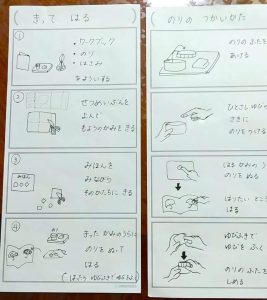 ( きって はる )
①
・ワークブック
・のり
・はさみ
をよういする
②
せつめいぶんを
よんで
もようのかみをきる
③
みほん
みほんを
みながら
そのかたちに きる
④
のり
きった かみのうらに
のりを ぬって
はる
( のりの つかいかた
のりの ふたを
あける
ひとさしゆびの
さきに
のりをつける
はる かみの
のりを ぬる
はりたい ところ
はる
ゆびふきで
ゆびを ふく
のりの ふたを
しめる